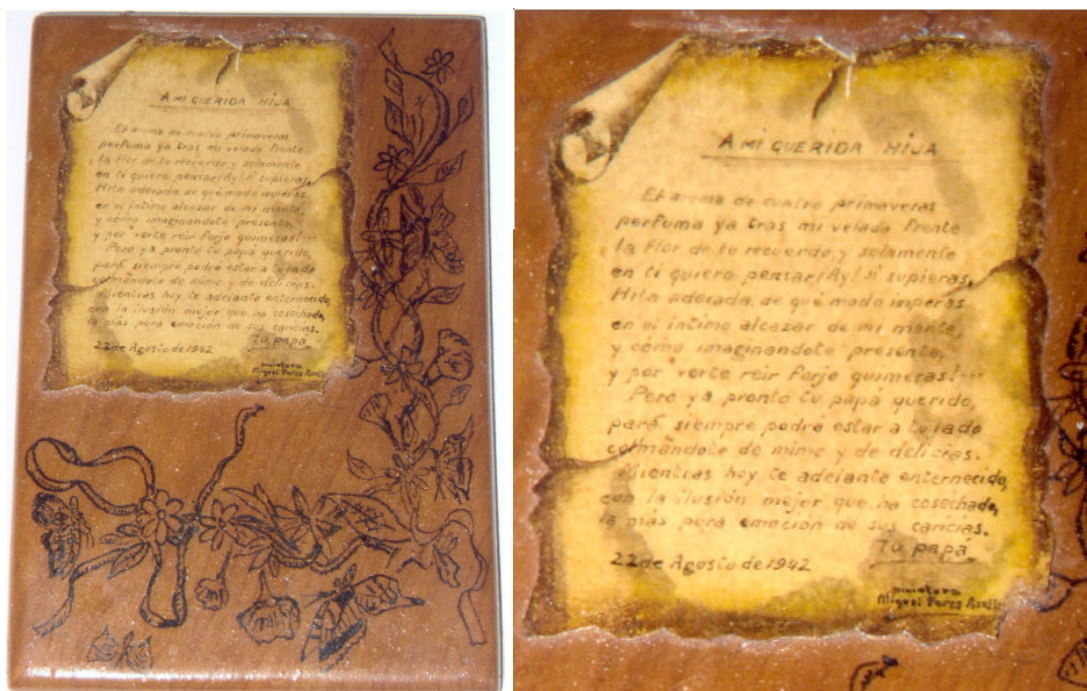 A MI QUERIDA HIJA
El aroma de cuatro primaveras
perfuma ya tras mi velada frente
la flor de tu recuerdo y solamente
en ti quiero pensar ¡Ay! si supieras,
Hija adorada, de qué modo imperas
en el íntimo alcazar de mi mente,
y cómo imaginandote presente,
y por verte reir forjo quimeras!...
Pero ya pronto tu papá querido,
para siempre podré estar a tu lado
colmándote de mimo y de delicias.
Mientras hoy te adelanto enternecido,
con la ilusión mejor que ha cosechado,
la más pura emoción de sus caricias.
Tu papá
22 de Agosto de 1942
miniatura
Miguel
A MI QUERIDA HIJA
El aroma de cuatro primaveras
perfuma ya tras mi velada frente
la flor de tu recuerdo y solamente
en ti quiero pensar ¡Ay! si supieras,
Hija adorada, de qué modo imperas
en el íntimo alcazar de mi mente,
y cómo imaginandote presente,
y por verte reir forjo quimeras!...
Pero ya pronto tu papá querido,
para siempre podré estar a tu lado
colmándote de mimo y de delicias.
Mientras hoy te adelanto enternecido,
con la ilusión mejor que ha cosechado,
la más pura emoción de sus caricias.
Tu papá
22 de Agosto de 1942
miniatura
Miguel